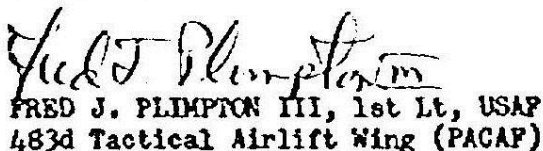 Fred J Plimpton III
FRED J. PLIMPTON III, 1st Lt, USAF
483d Tactical Airlift Wing (PACAF)